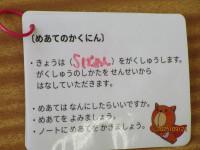 (めあてのかくにん)
・きょうは( )をがくしゅうします。
がくしゅうのしかたを せんせいから
はなしていただきます。
・めあては なんにしたらいいですか。
・めあてを よみましょう。
・ノートに めあてをかきましょう。